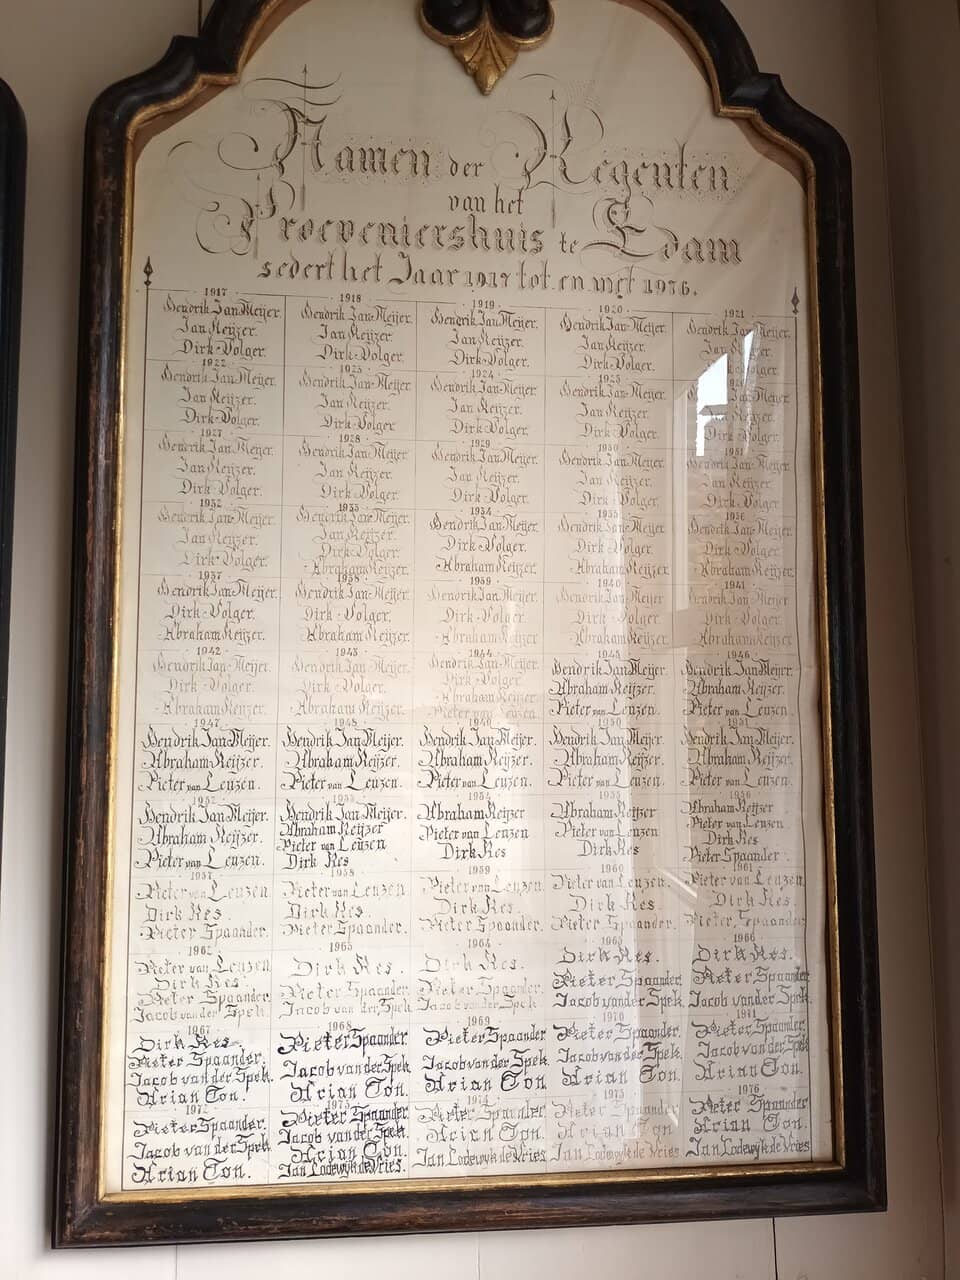 Namen der Regenten
van het
Proeveniershuis te Edam
sedert het Jaar 1917 tot en met 1976.
1917
Hendrik Jan Meijer.
Jan Keijzer.
Dirk Volger.
1918
Hendrik Jan Meijer.
Jan Keijzer.
Dirk Volger.
1919
Hendrik Jan Meijer.
Jan Keijzer.
Dirk Volger.
1920
Hendrik Jan Meijer.
Jan Keijzer.
Dirk Volger.
1921
Hendrik Jan Meijer.
Jan Keijzer.
Dirk Volger.
1922
Hendrik Jan Meijer.
Jan Keijzer.
Dirk Volger.
1923
Hendrik Jan Meijer.
Jan Keijzer.
Dirk Volger.
1924
Hendrik Jan Meijer.
Jan Keijzer.
Dirk Volger.
1925
Hendrik Jan Meijer.
Jan Keijzer.
Dirk Volger.
Jan Meijer.
Jan Keijzer.
Dirk Volger.
1927
Hendrik Jan Meijer.
Jan Keijzer.
Dirk Volger.
1928
Hendrik Jan Meijer.
Jan Keijzer.
Dirk Volger.
1929
Hendrik Jan Meijer.
Jan Keijzer.
Dirk Volger.
1930
Hendrik Jan Meijer.
Jan Keijzer.
Dirk Volger.
1931
Hendrik Jan Meijer.
Jan Keijzer.
Dirk Volger.
1932
Hendrik Jan Meijer.
Jan Keijzer.
Dirk Volger.
1933
Hendrik Jan Meijer.
Jan Keijzer.
Dirk Volger.
Abraham Keijzer.
1934
Hendrik Jan Meijer.
Dirk Volger.
Abraham Keijzer.
1935
Hendrik Jan Meijer.
Dirk Volger.
Abraham Keijzer.
1936
Hendrik Jan Meijer.
Dirk Volger.
Abraham Keijzer.
1937
Hendrik Jan Meijer.
Dirk Volger.
Abraham Keijzer.
1938
Hendrik Jan Meijer.
Dirk Volger.
Abraham Keijzer.
1939
Hendrik Jan Meijer.
Dirk Volger.
Abraham Keijzer.
1940
Hendrik Jan Meijer.
Dirk Volger.
Abraham Keijzer.
1941
Hendrik Jan Meijer.
Dirk Volger.
Abraham Keijzer.
1942
Hendrik Jan Meijer.
Dirk Volger.
Abraham Keijzer.
1943
Hendrik Jan Meijer.
Dirk Volger.
Abraham Keijzer.
1944
Hendrik Jan Meijer.
Dirk Volger.
Abraham Keijzer.
Pieter van Leuzen.
1945
Hendrik Jan Meijer.
Abraham Keijzer.
Pieter van Leuzen.
1946
Hendrik Jan Meijer.
Abraham Keijzer.
Pieter van Leuzen.
1947
Hendrik Jan Meijer.
Abraham Keijzer.
Pieter van Leuzen.
1948
Hendrik Jan Meijer.
Abraham Keijzer.
Pieter van Leuzen.
1949
Hendrik Jan Meijer.
Abraham Keijzer.
Pieter van Leuzen.
1950
Hendrik Jan Meijer.
Abraham Keijzer.
Pieter van Leuzen.
1951
Hendrik Jan Meijer.
Abraham Keijzer.
Pieter van Leuzen.
1952
Hendrik Jan Meijer.
Abraham Keijzer.
Pieter van Leuzen.
1953
Hendrik Jan Meijer.
Abraham Keijzer
Pieter van Leuzen
Dirk Kes
1954
Abraham Keijzer
Pieter van Leuzen
Dirk Kes
1955
Abraham Keijzer
Pieter van Leuzen
Dirk Kes
1956
Abraham Keijzer
Pieter van Leuzen
Dirk Kes
Pieter Spaander
1957
Pieter van Leuzen
Dirk Kes.
Pieter Spaander.
1958
Pieter van Leuzen.
Dirk Kes.
Pieter Spaander.
1959
Pieter van Leuzen.
Dirk Kes.
Pieter Spaander.
1960
Pieter van Leuzen.
Dirk Kes.
Pieter Spaander.
1961
Pieter van Leuzen.
Dirk Kes.
Pieter Spaander
1962
Pieter van Leuzen
Dirk Kes.
Pieter Spaander.
Jacob van der Spek.
1963
Dirk Kes.
Pieter Spaander.
Jacob van der Spek
1964
Dirk Kes.
Pieter Spaander.
Jacob van der Spek
1965
Dirk Kes.
Pieter Spaander.
Jacob van der Spek.
1966
Dirk Kes.
Pieter Spaander
Jacob van der Spek.
1967
Dirk Kes.
Pieter Spaander.
Jacob van der Spek.
Arian Ton.
1968
Pieter Spaander
Jacob van der Spek.
Arian Ton.
1969
Pieter Spaander
Jacob van der Spek.
Arian Ton.
1970
Pieter Spaander.
Jacob van der Spek.
Arian Ton.
1971
Pieter Spaander.
Jacob van der Spek.
Arian Ton.
1972
Pieter Spaander.
Jacob van der Spek
Arian Ton.
1973
Pieter Spaander
Jacob van der Spek.
Arian Ton.
Jan Lodewyk de Vries.
1974
Pieter Spaander
Arian Ton.
Jan Lodewyk de Vries
1975
Pieter Spaander
Arian Ton
Jan Lodewyk de Vries
1976
Pieter Spaander
Arian Ton.
Jan Lodewyk de Vries